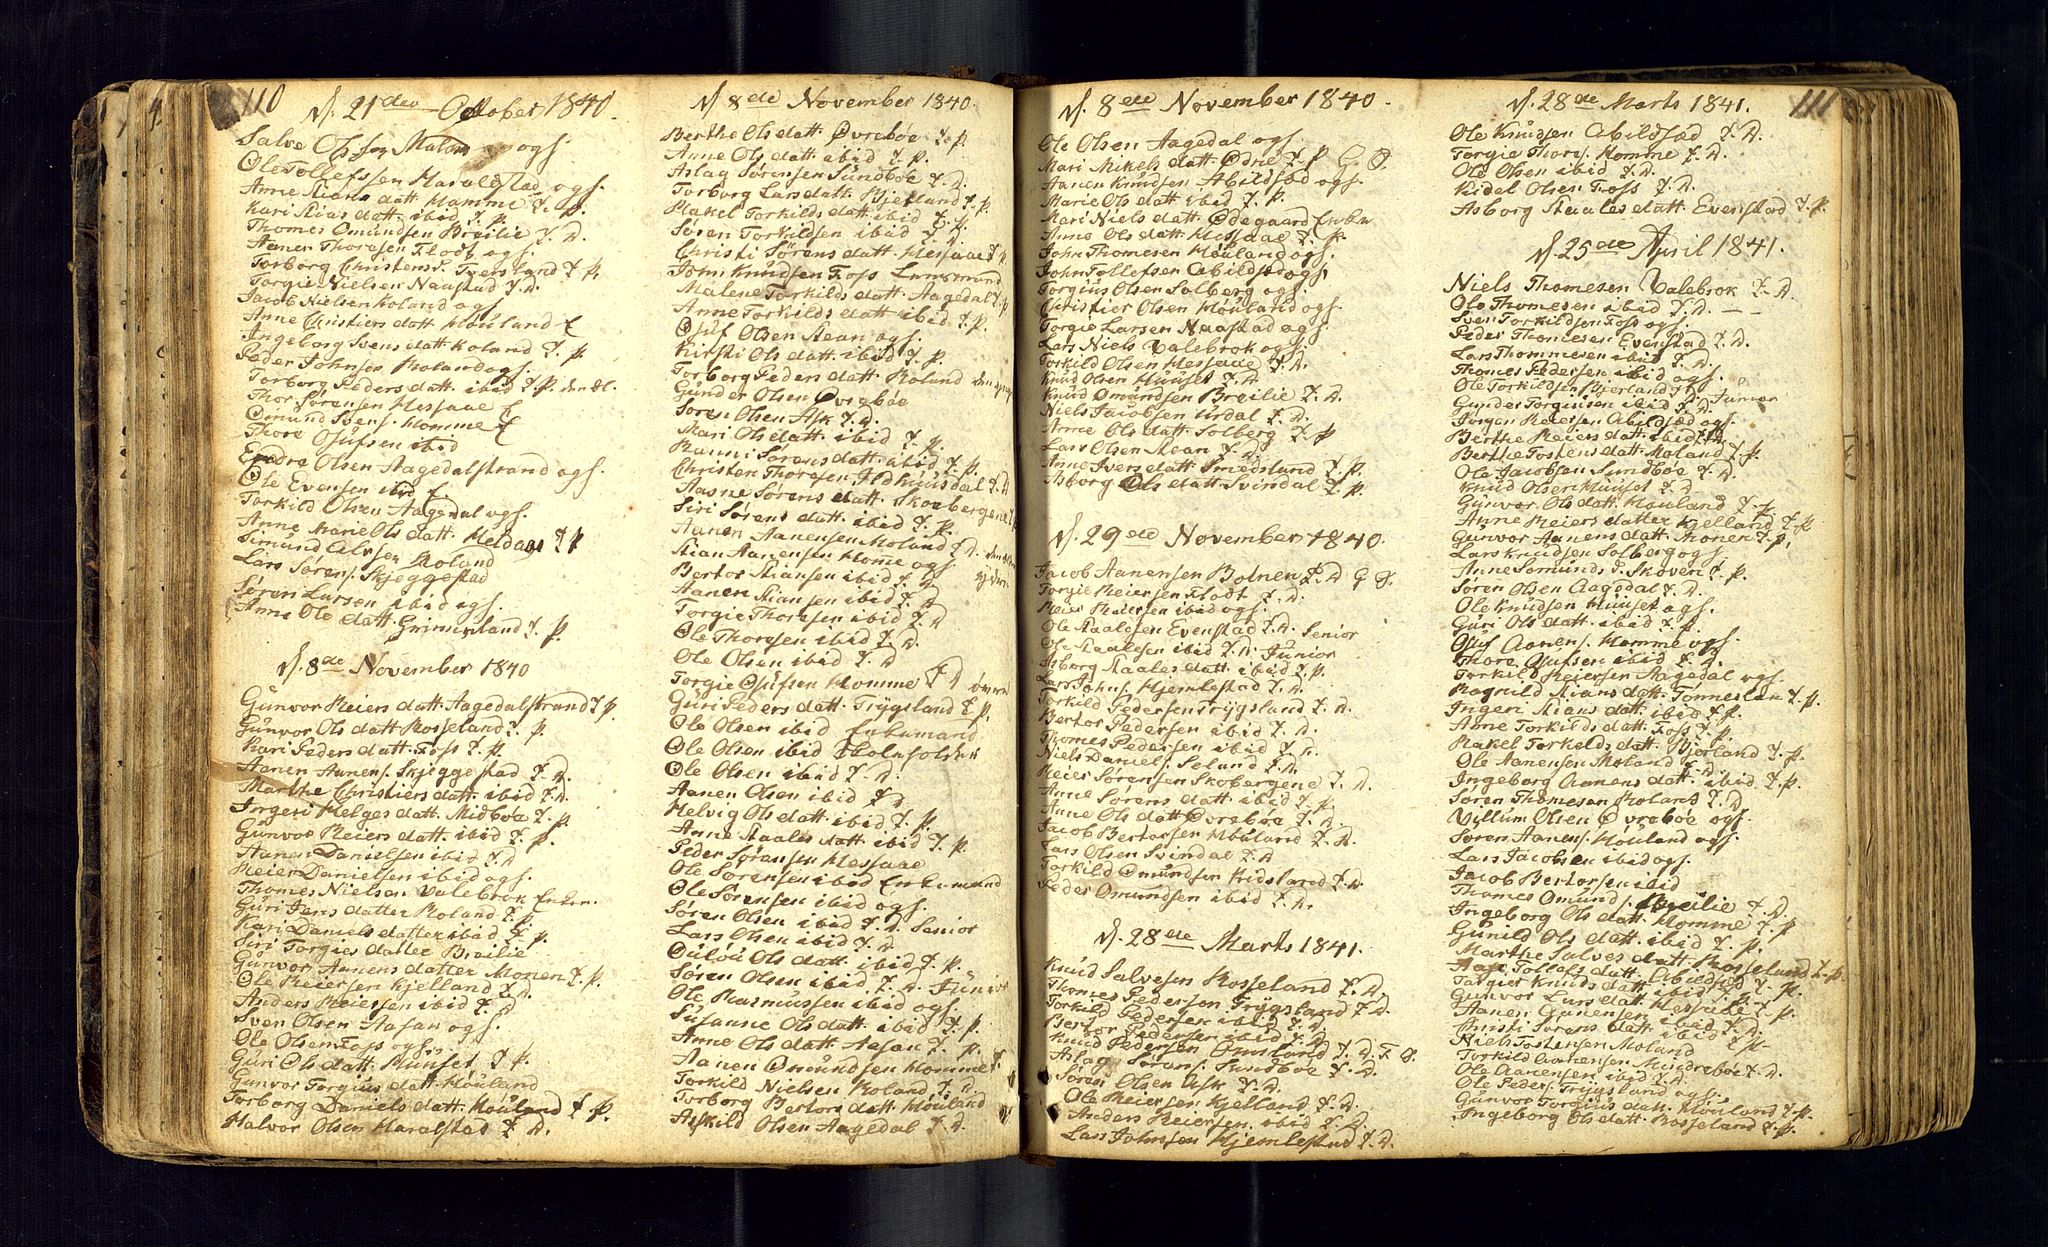 110
d. 21de October 1840.
Salve Olsen ogf.
Ole Tollefsen Haraldstad ogf.
Anne Stians datt. Homme T. P.
Kari Stias datt. ibid T. P.
Thomes Omundsen Breilie T. D.
Aanen Thoresen Flodt ogf.
Torborg Christens. Tversland T. P.
Torgie Nielsen Naastad T. D.
Jacob Nielsen Roland ogf.
Anne Christiers datt. Houland E
Ingeborg Svens datt. Roland T. P.
Peder Johnsen Roland ogf.
Torborg Peders datt. ibid T. P. den æl.
Thor Sørensen Messaae E
Omund Svens. Homme E
Thore Osufsen ibid
Endre Olsen Aagedalstrand ogf.
Ole Evensen ibid E
Torkild Olsen Aagedal ogf.
Anne Marie Ols datt. T P
Simund Moland
Lars Sørens. Skjeggestad
Søren Larsen ibid ogf.
Anne Ole datt. Grimenland T. P.
d. 8de November 1840
Gunvor Reiers datt. Aagedalstrand T. P.
Gunvor Ols datt. Rosseland T. P.
Kari Peders datt. Foss T. P.
Aanen Aanens. Skjeggestad T. D.
Marthe Christiers datt. ibid T. D.
Ingeri Helges datt. Midboe T. P.
Gunvor Reiers datt. ibid T. P.
Aanen Danielsen ibid T. D
Reier Danielsen ibid ogf.
Thomes Nielsen Valebrok Enken.
Guri Jens datter Roland T. P.
Kari Daniels datter ibid T. P.
Siri Torgies datter Breilie
Gunvor Aanens datter Monen T. P.
Ole Reiersen Kjelland T. D.
Anders Reiersen ibid T. D
Sven Olsen Aasan ogf.
Ole Olsen Foss ogf.
Guri Ols datt. Huuset T. P.
Gunvor Torgius datt. Houland
Torborg Daniels datt. Houland T. P.
Halvor Olsen Haralstad T. D.
d. 8de November 1840.
Berthe Ols datt. Øvrebøe T. P.
Anne Ols datt. ibid T. P.
Aslag Sørensen Sundboe T. D.
Torborg Lars datt. Bjelland T. P.
Rakel Torkilds datt. ibid T. P.
Søren Torkildsen ibid T. D.
Christi Sørens datt. Messaae T. P.
John Knudsen Foss
Malene Torkilds datt. Aagedal T. P.
Anne Torkilds datt. ibid T. P.
Osuf Olsen Stean ogf.
Kirsti Ols datt. ibid T. P.
Torborg Peders datt. Roland den
Gunder Olsen Øvrebøe
Søren Olsen Ask T. D.
Mari Ols datt. ibid T. P.
Ranni Sørens datt. ibid T. P.
Christen Thoresen Ildhuusdal T. D
Aasne Sørens datt. Skoebergene T. P
Siri Sørens datt. ibid T. P.
Aanen Aanensen Moland T. D.
Stian Aanensen Homme ogf.
Bertor Stiansen ibid T. D
Aanen Stiansen ibid T. D
Torgie Thoresen ibid T. D
Ole Thoresen ibid T. D.
Ole Olsen ibid T. D
Torgie Osufsen Homme T D
Guri Peders datt. Trygsland T. P.
Ole Olsen ibid Enkemand
Ole Olsen ibid Skoleholder
Ole Olsen ibid T. D.
Aanen Olsen ibid T. D
Helvig Ols datt. ibid T. P.
Anne Staales datt. ibid T. P.
Peder Sørensen Messaae
Ole Sørensen ibid Enkemand
Ole Sørensen ibid ogf.
Søren Olsen ibid T. D. Senior
Lars Olsen ibid T. D
Oulou Ols datt. ibid T. P.
Søren Olsen ibid T. D. Junior
Ole Rasmussen ibid ogf.
Susanne Ols datt. ibid T. P.
Anne Ols datt. Aasan T. P.
Aanen Omundsen Homme T.
Torkild Nielsen Roland T. D.
Torborg Bertors datt. Houland
Askild Olsen Aagedal T. D.
d. 8de November 1840.
Ole Olsen Aagedal ogf.
Mari Mikels datt. Odne T. P G. O.
Aanen Knudsen Abildsød ogf.
Marie Ols datt. ibid T. P.
Mari Niels datt. Ødegaard Enke
Anne Ols datt. Messaae T. P.
John Thomesen Houland ogf.
John Tollefsen Abildsød ogf.
Torgius Olsen Solberg ogf.
Christier Olsen Houland ogf.
Torgie Larsen Naastad ogf.
Lars Niels. Valebrok ogf.
Torkild Olsen Messaae T. D.
Knud Olsen Huuset T. D.
Knud Omundsen Breilie T. D.
Niels Jacobsen Urdal T. D.
Anne Ols datt. Solberg T. P
Lars Olsen Stean T. D
Anne Ivers datt. Smedsland T. P.
Asborg Ols datt. Svindal T. P.
d. 29de November 1840.
Jacob Aanensen Bolnen T. D G O.
Torgie Reiersen Flodt T. D.
Reier Reiersen ibid ogf.
Ole Staalesen Evenstad T. D. Senior
Ole Staalesen ibid T. D. Junior
Asborg Staales datt. ibid T. P.
Lars Johns. Hjemlestad T. D.
Torkild Pedersen Trygsland T. D.
Bertor Pedersen ibid T. D.
Thomes Pedersen ibid T. D.
Niels Daniels. Soland T. D.
Reier Sørensen Skobergene T. D.
Anne Sørens datt. ibid T. P.
Anne Ols datt. Øvrebøe T. P.
Jacob Bertorsen Houland T. D.
Lars Olsen Svindal T. D
Torkild Omundsen Kidsland T. D.
Peder Omundsen ibid T. D.
d. 28de Marts 1841.
Knud Salvesen Rosseland T. D.
Thomes Pedersen Trygsland T. D.
Torkild Pedersen ibid T. D.
Bertor Pedersen ibid T. D.
Knud Pedersen Omsland T. D. F. O.
Aslag Sørens. Sundbøe T. D.
Søren Olsen Ask T. D.
Ole Reiersen Kjelland T. D.
Anders Reiersen ibid T. D.
Lars Johnsen Hjemlestad T. D.
111
d. 28de Marts 1841.
Ole Knudsen Abildsød T. D.
Torgie Thors. Homme T. D.
Ole Olsen ibid T. D.
Kidel Olsen Foss T. D.
Asborg Staales datt. Evenstad T. P.
d. 25de April 1841.
Niels Thomesen Valebrok T. D.
Ole Thomesen ibid T. D.
Sven Torkildsen Foss ogf.
Peder Thomesen Evenstad T. D.
Lars Thommesen ibid T. D.
Thomes Pedersen ibid ogf.
Ole Torkildsen Bjerland T. D. Junior
Gunder Torgiusen ibid T. D.
Jørgen Reiersen Abildsød ogf.
Berthe Reiers datt. ibid T. P.
Berthe Tostens datt. Moland T. P.
Ole Jacobsen Sundbøe T. D.
Knud Olsen Huuset T. D
Gunvor Ols datt. Houland T. P.
Anne Reiers datter Kjelland T. P
Gunvor Aanens datt. Monen T. P.
Lars Knudsen Solberg ogf.
Anne Somunds d. Skoven T. P.
Søren Olsen Aagedal T. D.
Ole Knudsen Huuset ogf.
Guri Ols datt. ibid T. P.
Osuf Aanens. Homme ogf.
Thore Osufsen ibid T. D.
Torkild Reiersen Aagedal ogf.
Ragnild Stians datt. Tonnesland T. P.
Ingeri Stians datt. ibid T. P.
Anne Torkilds datt. Foss T. P.
Rakel Torkilds datt. Bjerland T. P.
Ole Aanensen Moland T. D
Ingeborg Aanens datt. ibid T. P.
Søren Thomesen Roland T. D
Villum Olsen Øvrebøe ogf.
Søren Aanens. Houland ogf.
Lars Jacobsen ibid ogf.
Jacob Bertorsen ibid
Thomes Omunds. Breilie T. D.
Ingeborg Ols datt. Homme T. P
Gunild Ols datt. ibid T. P.
Marthe Salves datt. Rosseland T. P.
Aase Tollefs datt. Abildsød T. P.
Targier Knuds datt. ibid T. P.
Gunvor Lars datt. Messaae T. P
Aanen Aanensen ibid T. D
Christi Sørens datt. ibid T. P
Niels Tostensen Moland
Torkild Aanensen Muidrebøe T. D.
Ole Aanensen ibid T. D.
Ole Peders. Trygsland ogf.
Gunvor Torgius datt. Houland T. P.
Ingeborg Ols datt. Rosseland T. P.